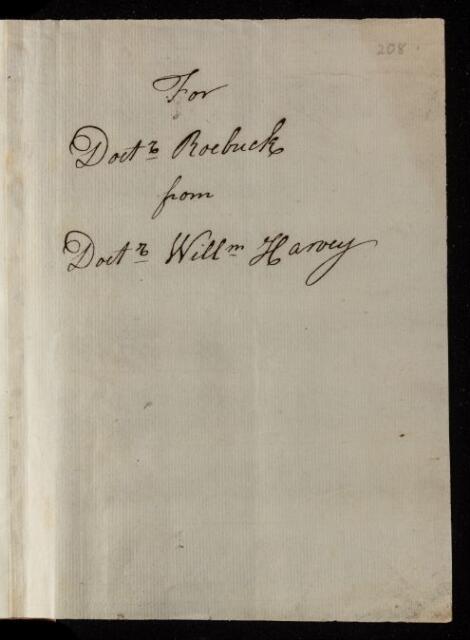 208
For
Doctr Roebuck
from
Doctr Willm Harvey